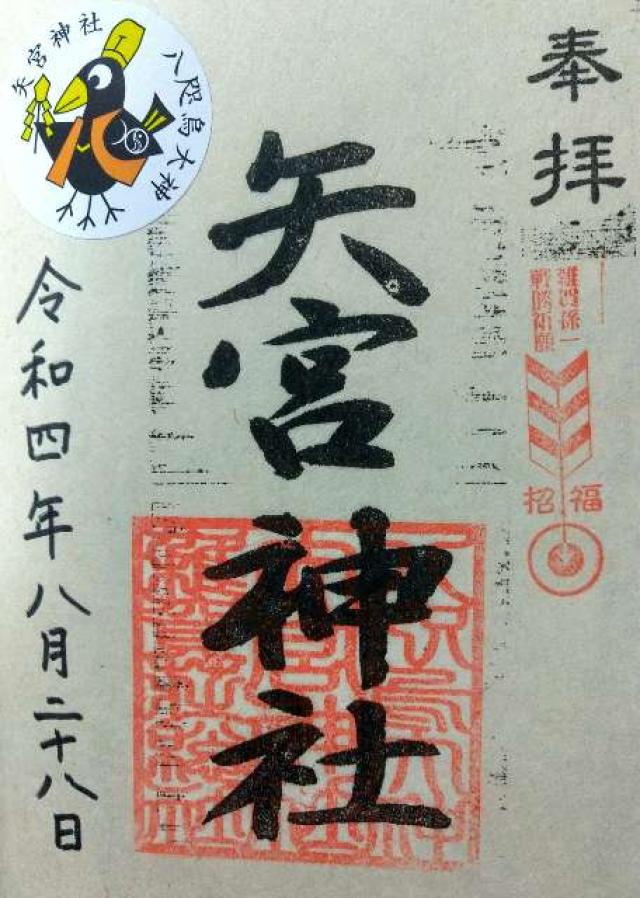 奉拝
雑賀孫一
戦勝祈願
招福
矢宮神社
矢宮神社
八咫烏大神
令和四年八月二十八日